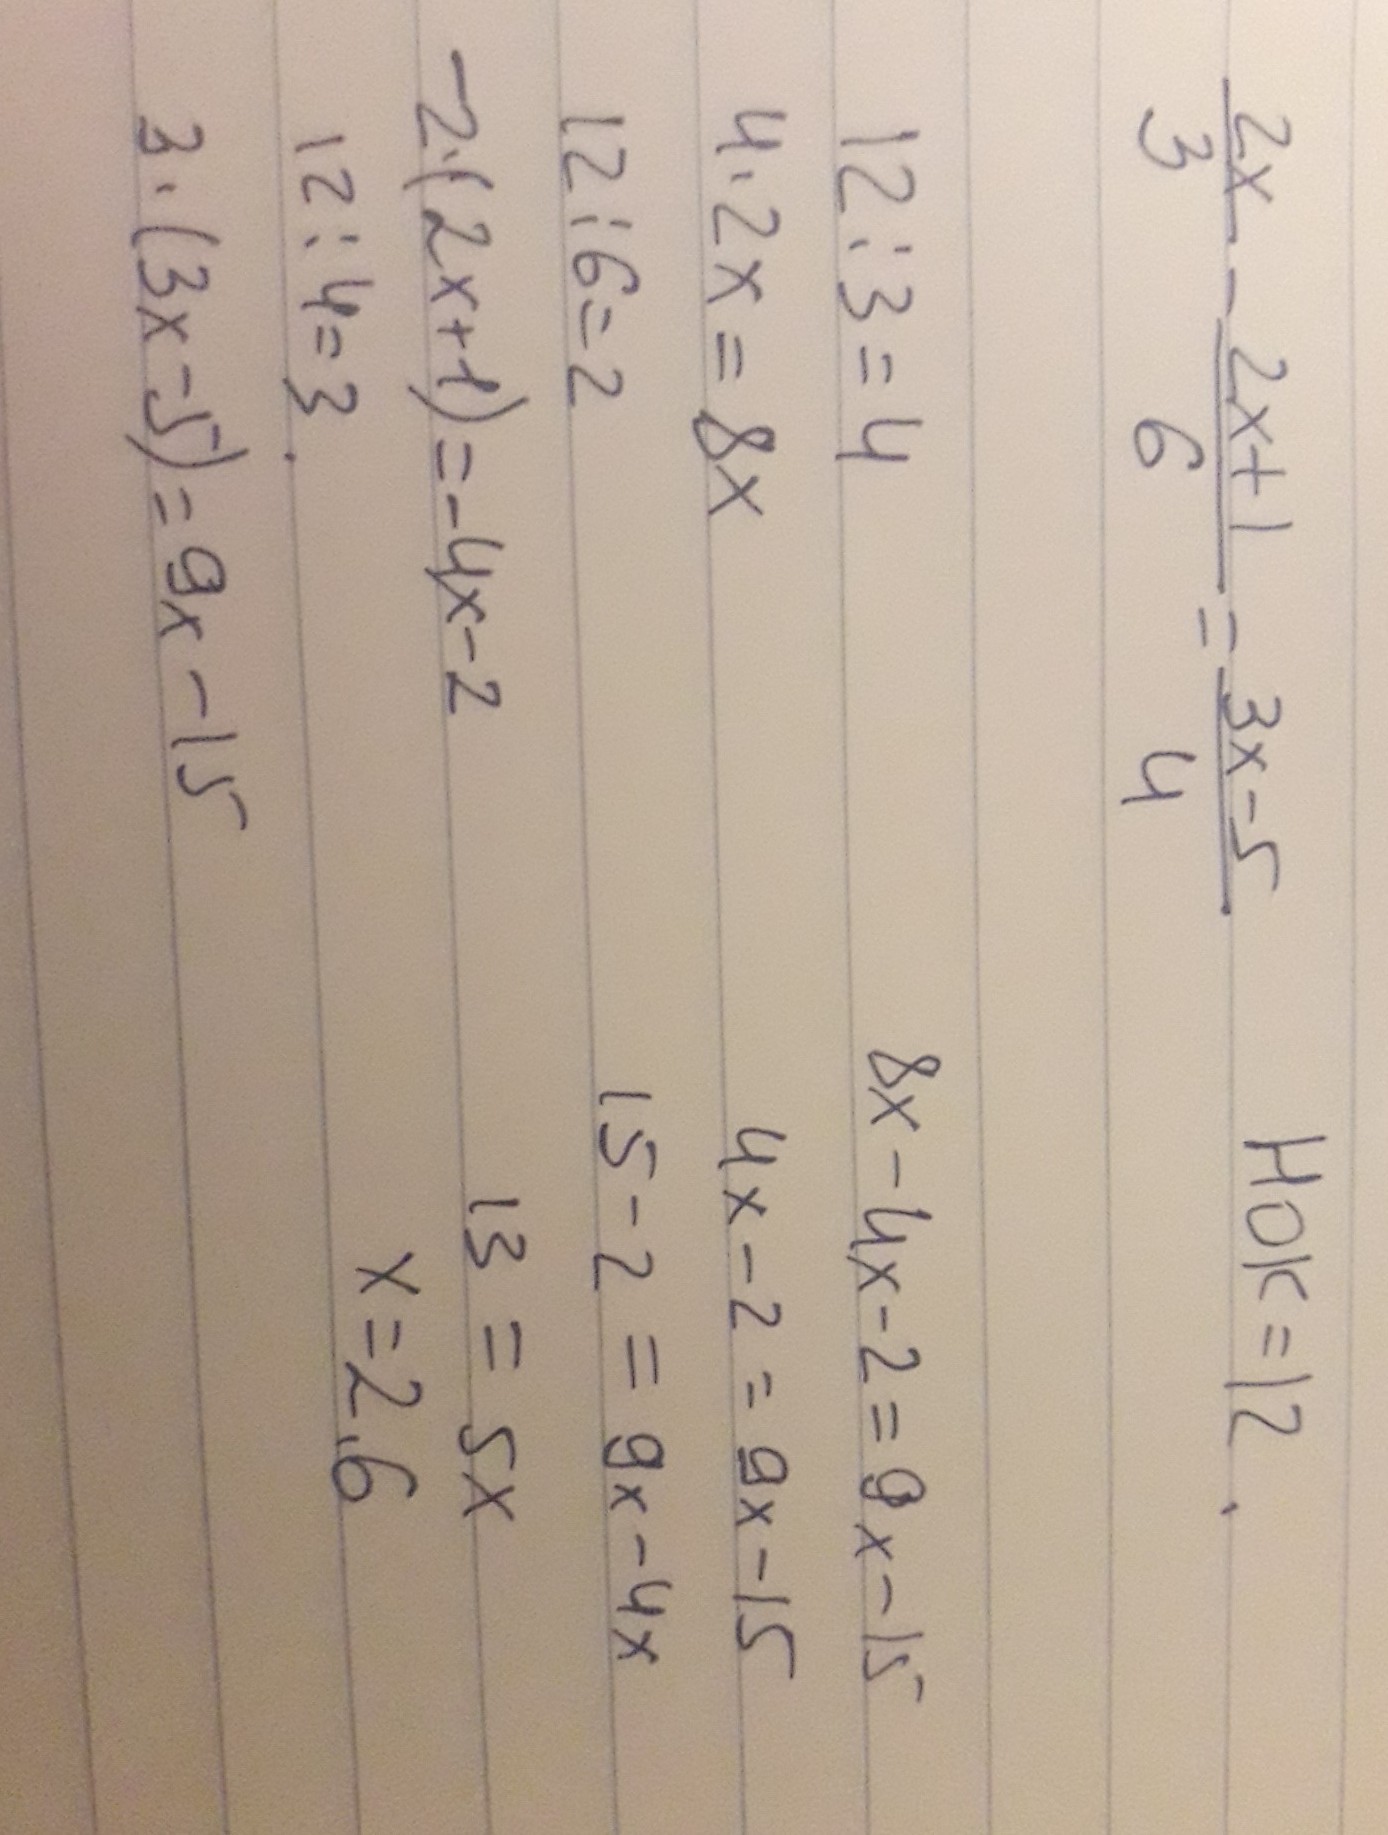 2x/3 - 2x+1/6 = 3x-5/4 НОК = 12.
12 : 3 = 4
4 · 2x = 8x
12 : 6 = 2
-2·(2x+1) = -4x-2
12 : 4 = 3.
3 · (3x-5) = 9x - 15
8x - 4x - 2 = 9x - 15
4x - 2 = 9x - 15
15 - 2 = 9x - 4x
13 = 5x
x = 2,6